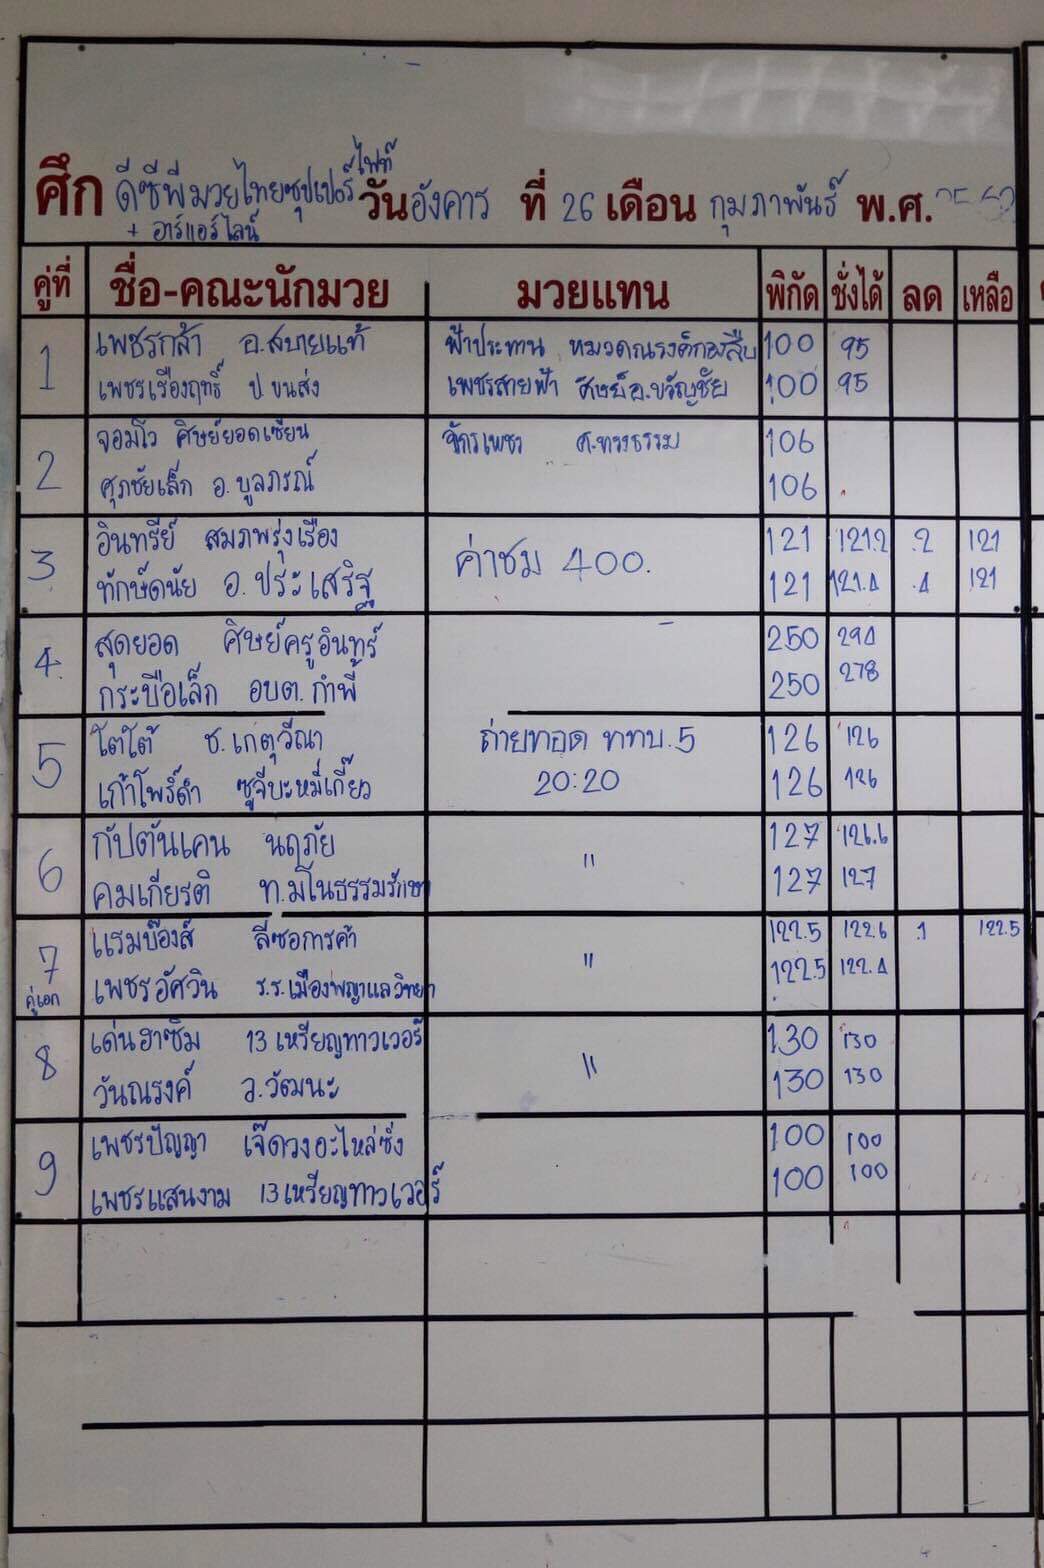 ไฟท์
ศึก ดีซีพีมวยไทยซุปเปอร์ วัน อังคาร ที่ 26 เดือน กุมภาพันธ์ พ.ศ.
+ อาร์แอร์ไลน์
คู่ที่ ชื่อ-คณะนักมวย มวยแทน พิกัด ชั่งได้ ลด เหลือ
1 เพชรกล้า อ.สบายแท้ ฟ้าประทาน 100 95
เพชรเรืองฤทธิ์ ป.ขนส่ง เพชรสายฟ้า ศิษย์อ.ขวัญชัย 100 95
2 จอมโว ศิษย์ยอดเซียน จักรเพชร 106
ศุภชัยเล็ก อ.บูลภรณ์ 106
3 อินทรีย์ สมภพรุ่งเรือง ค่าชม 400. 121 121.2 .2 121
ทักษ์ดนัย อ.ประเสริฐ 121 121.4 .4 121
4 สุดยอด ศิษย์ครูอินทร์ 250 294
กระบือเล็ก อบต.กำพี้ 250 278
5 โตโต้ ช.เกตุวีณา ถ่ายทอด ททบ.5 126 126
เก้าโพธิ์ดำ ซูจีบะหมี่เกี๊ยว 20:20 126 126
6 กัปตันเคน นฤภัย " 127 126.6
คมเกียรติ ท.มโนธรรมรักษา 127 127
7 แรมบ๊องส์ ลี่ซอการค้า " 122.5 122.6 .1 122.5
คู่เอก เพชรอัศวิน ร.ร.เมืองพญาแลวิทยา 122.5 122.4
8 เด่นฮาซิม 13 เหรียญทาวเวอร์ " 130 130
วันณรงค์ ว.วัฒนะ 130 130
9 เพชรปัญญา เจ๊ดวงอะไหล่ซิ่ง 100 100
เพชรแสนงาม 13เหรียญทาวเวอร์ 100 100